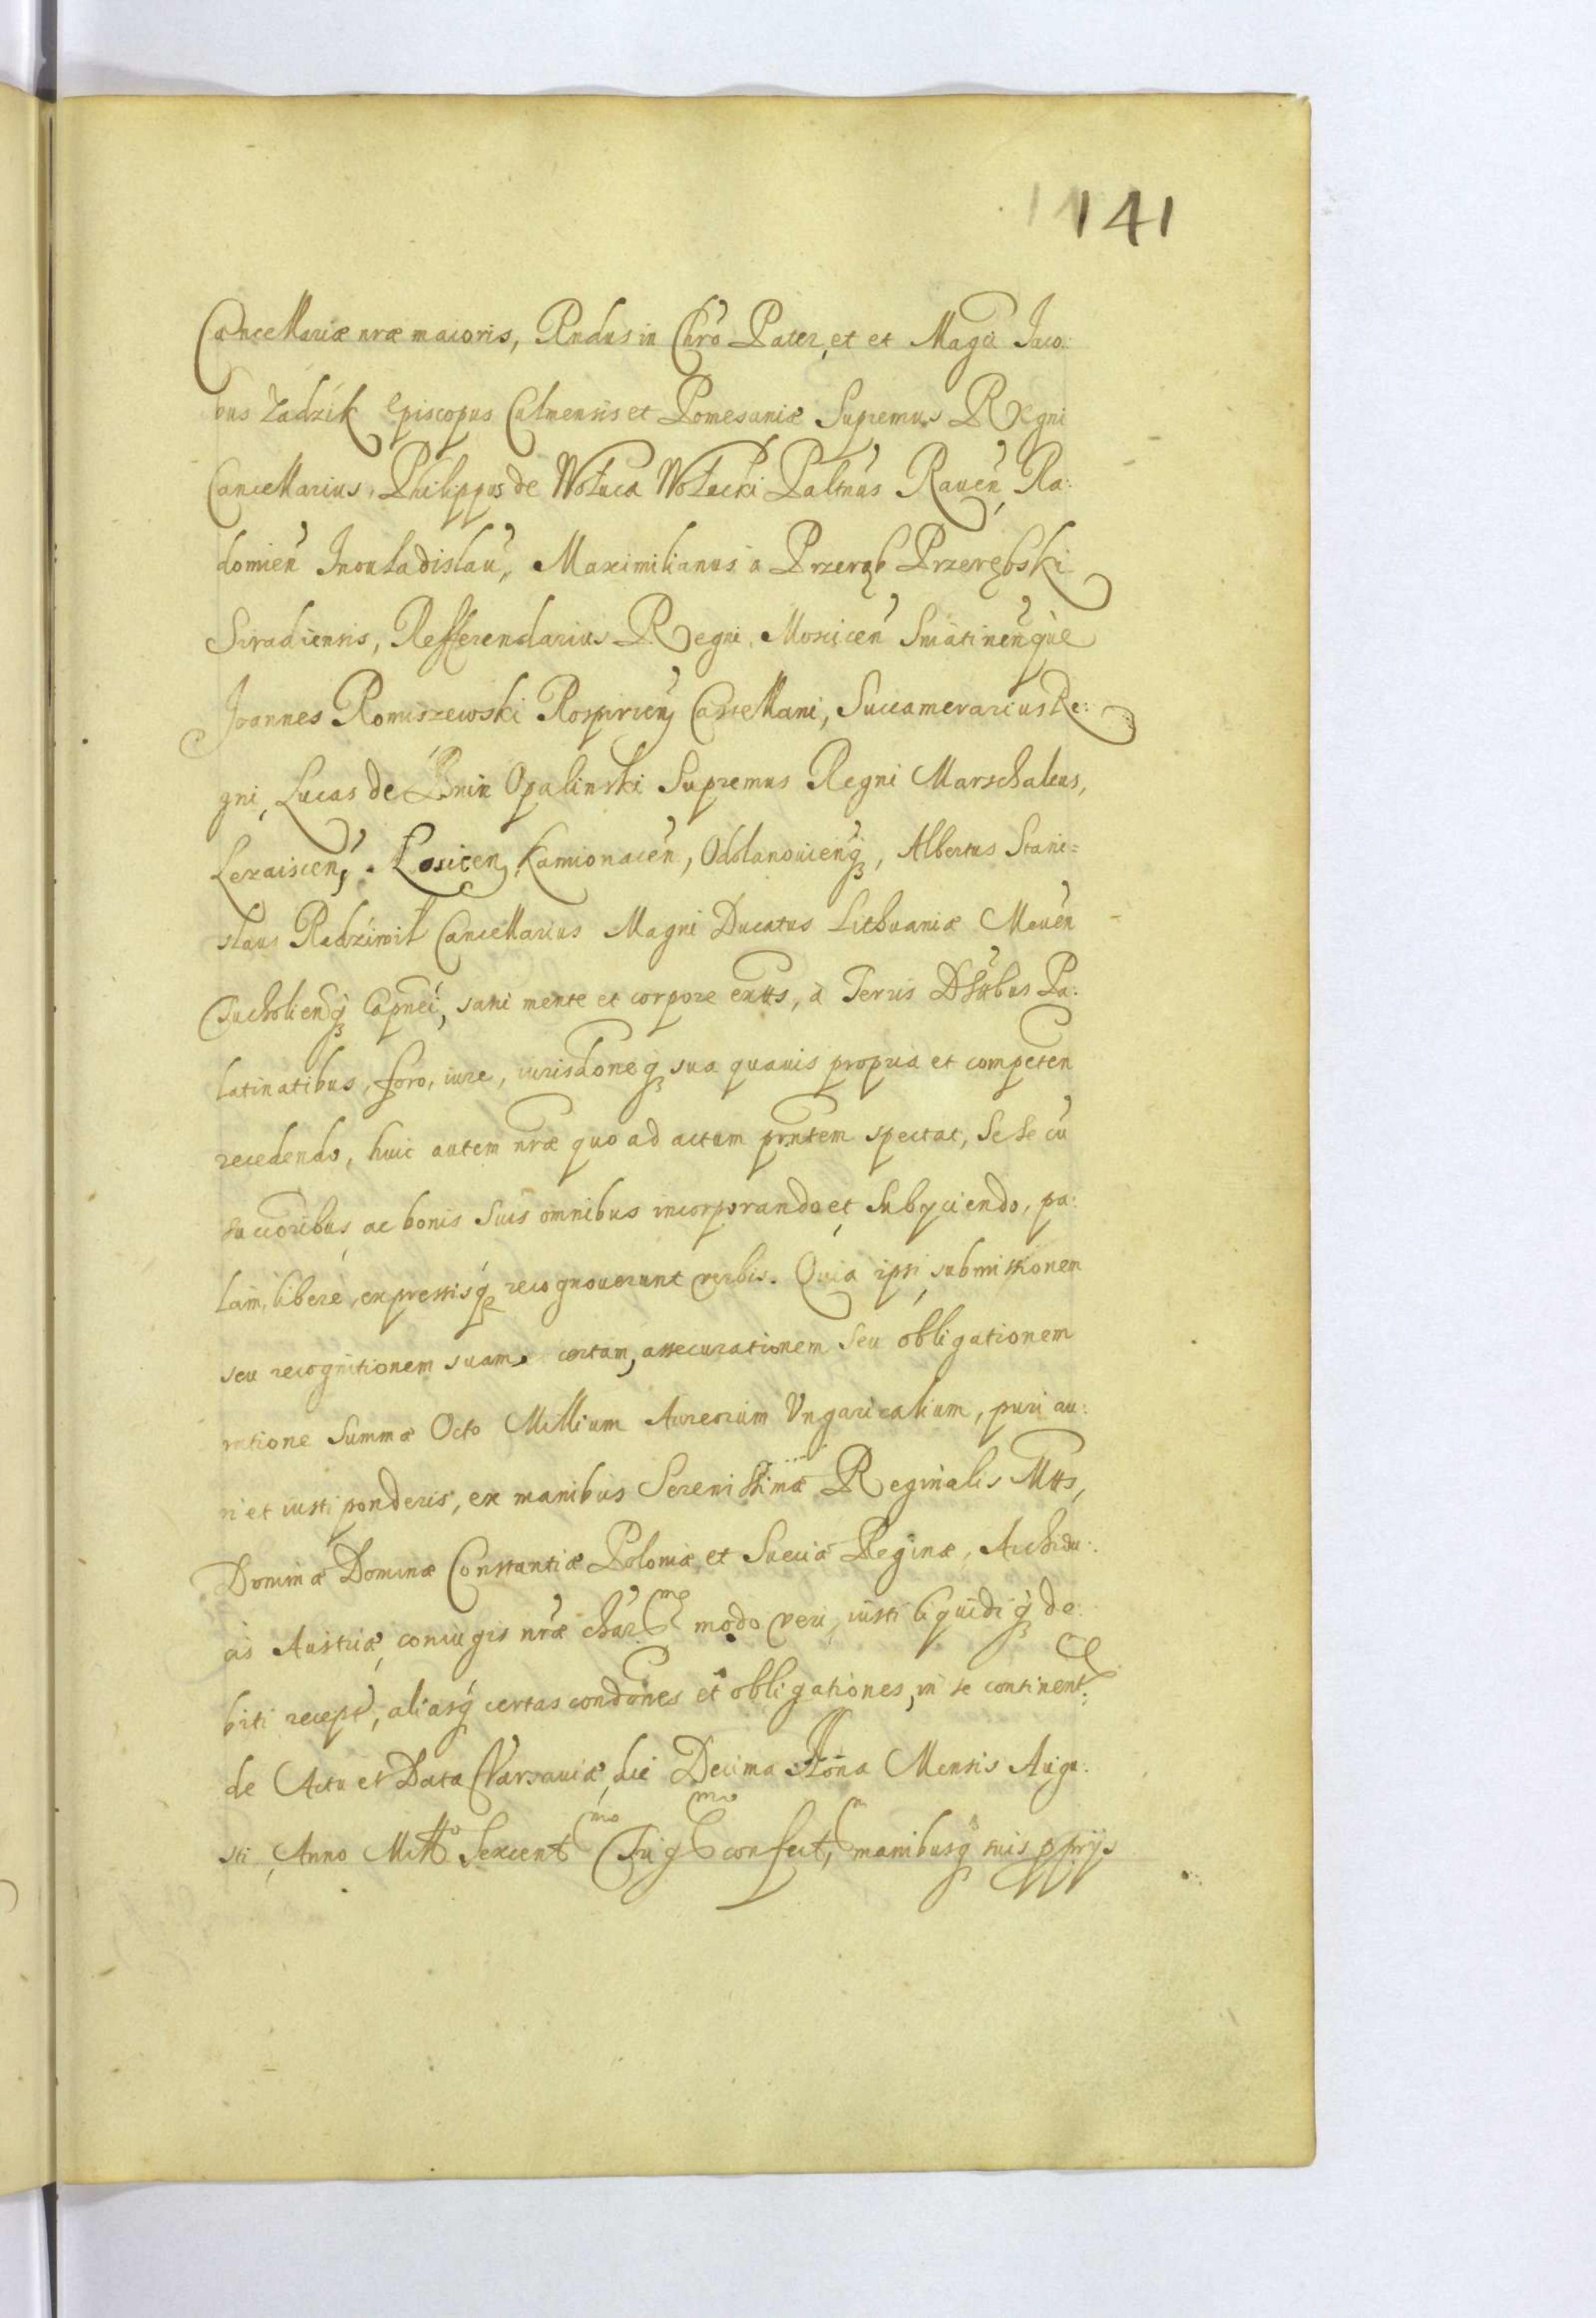 141
Cancellariæ nræ maioris, Rndus in Chro Pater, et et Magci Jaco:
bus Zadzik Episcopus Culmensis et Pomesaniæ Supremus Regni
Cancellarius, Philippus de Wołuca Wołucki Paltnus Rauen, Ra:
domien Jnouladislau, Maximilianus à Przerąb Przerębski
Siradiensis, Refferendarius Regni, Moscicen Sniatinenque
Joannes Romiszewski Rospirien Castellani, Succamerarius Re:
gni, Lucas de Bnin Opalinski Supremus Regni Marschalcus,
Lezaiscen, Łosicen, Kamionacen, Odolanouienq3, Albertus Stani=
slaus Radziwił Cancellarius Magni Ducatus Lithuaniæ Meuen
Tucholienq3 Capnei, sani mente et corpore exntts, à Terris Dstrbus Pa:
latinatibus, foro, iure, iurisdoneq3 sua quauis propria et competen
recedendo, huic autem nræ quo ad actum pntem spectat, Se se cū
succoribus ac bonis suis omnibus incorporando et Subyciendo, pa:
lam, libere, expressisq3 recognouerunt verbis. Quia ipsi submissionem
seu recognitionem suam certam, assecurationem seu obligationem
ratione Summæ Octo Millium Aureorum Vngaricalium, puri au:
ri et iusti ponderis, ex manibus Serenissimæ Reginalis Mtts,
Dominæ Dominæ Constantiæ Poloniæ et Sueciæ Reginæ, Archidu:
cis Austriæ, coniugis nræ char mo modo veri, iusti liquidiq3 de:
biti recept, aliasq3 certas condones et obligationes, in se continent:
de Actu et Data Varsauiæ, die Decima Nona Mensis Augu:
sti, Anno Millo Sexcent mo Trig mo confect, manibusq3 suis pprijs